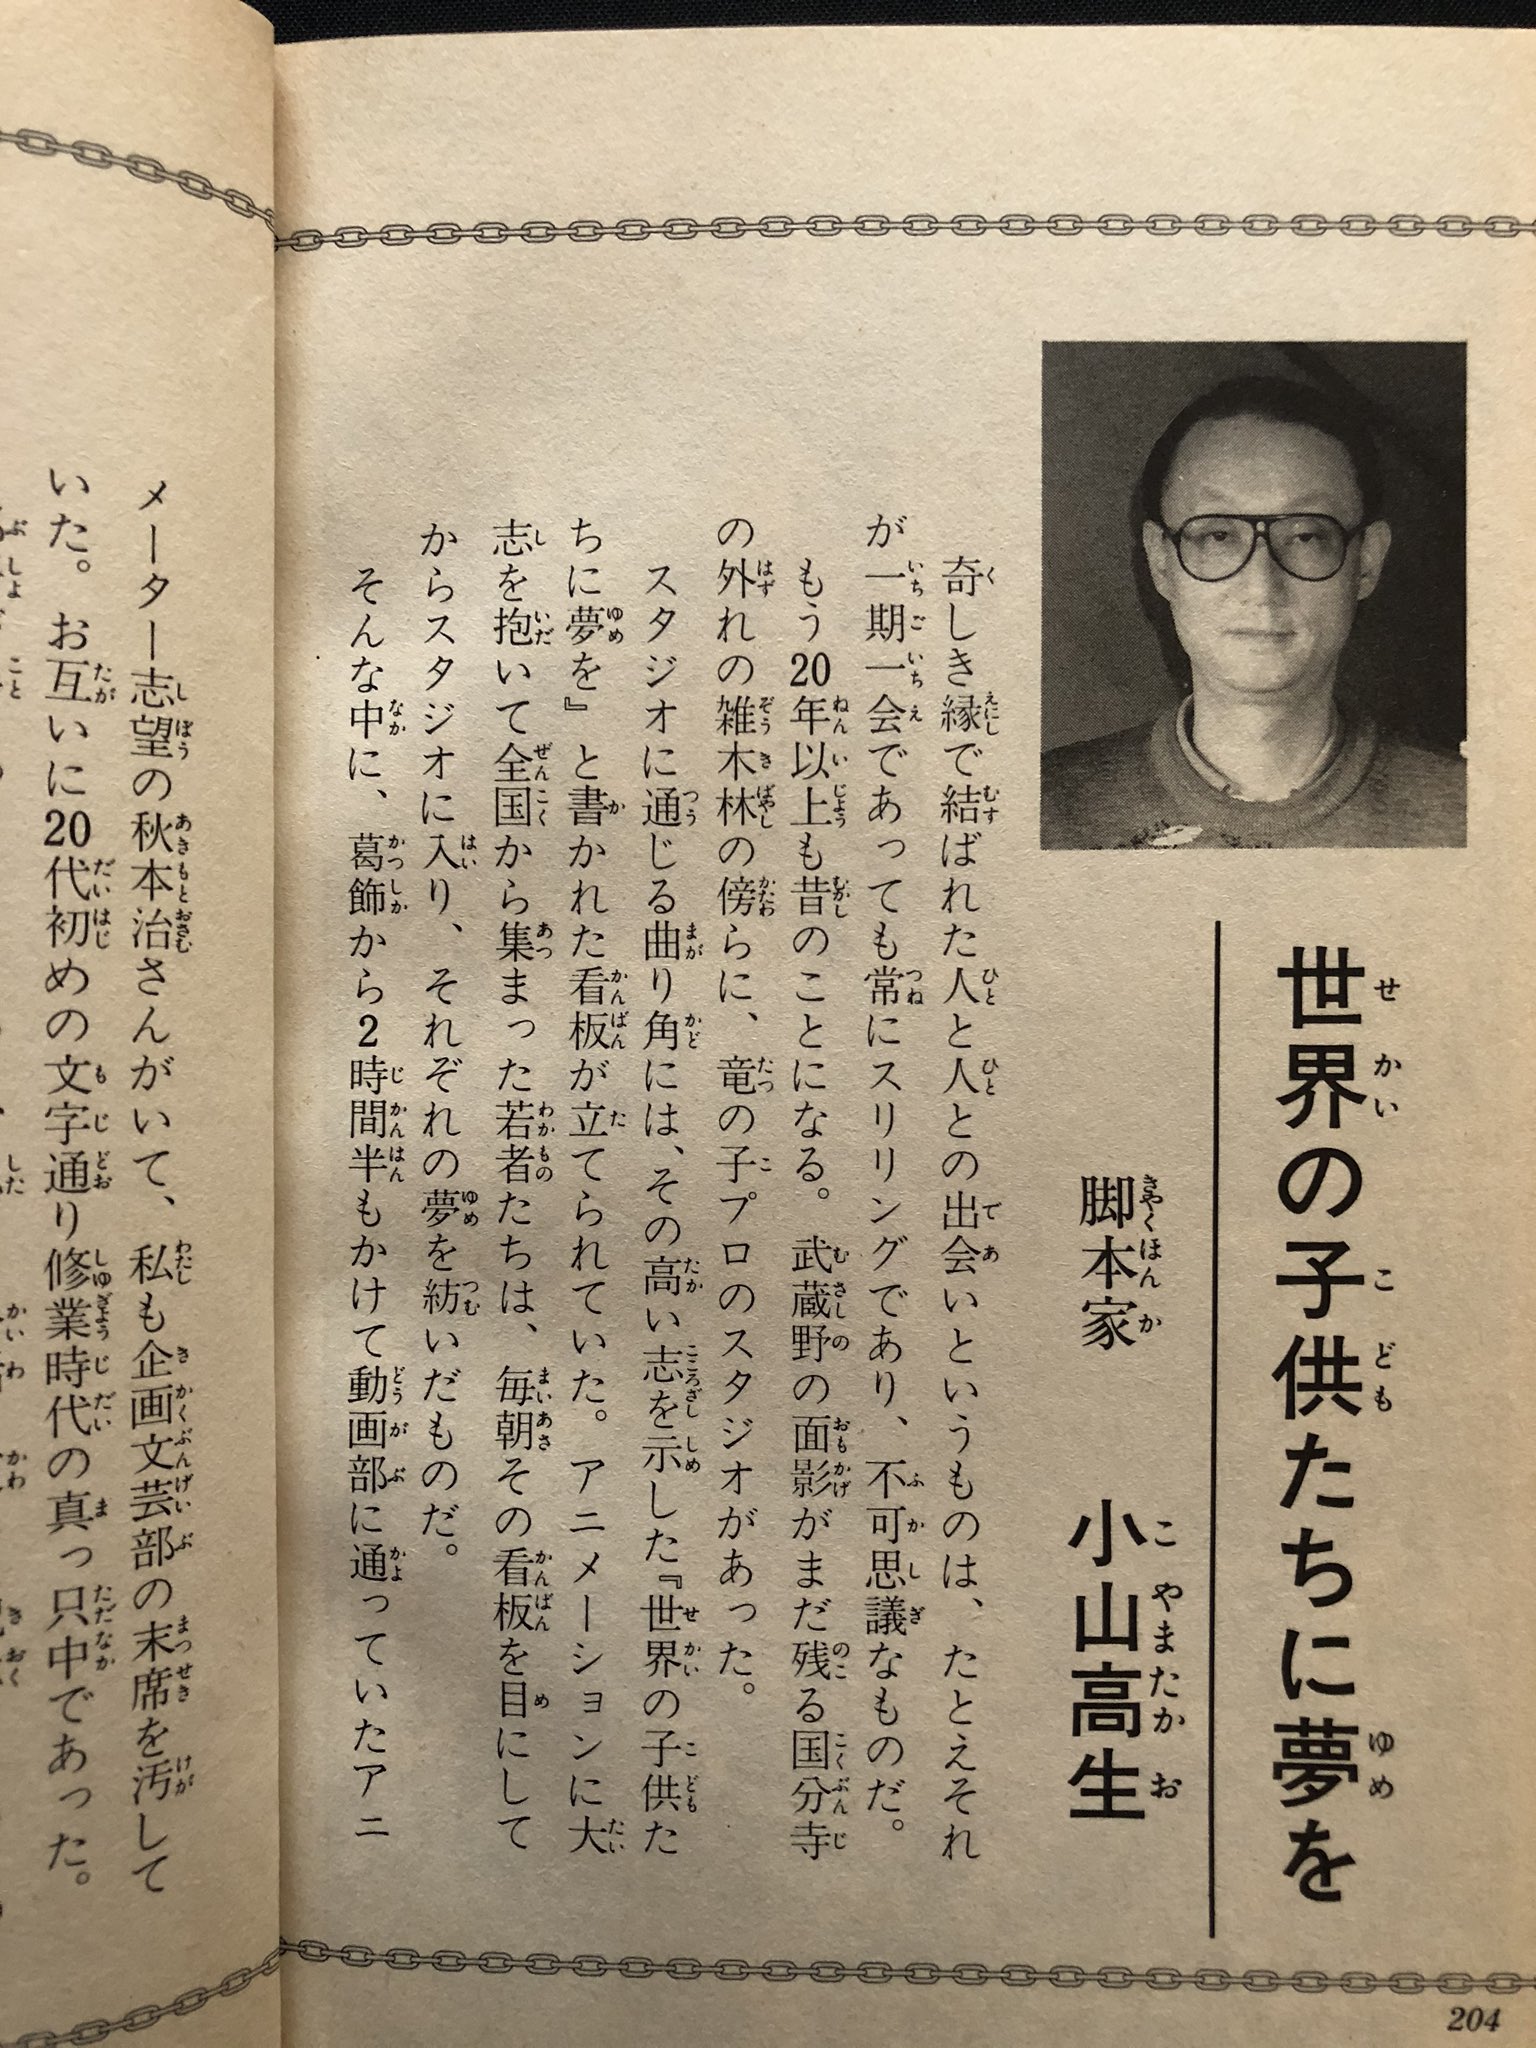 世界の子供たちに夢を
脚本家 小山高生
奇しき縁で結ばれた人と人との出会いというものは、たとえそれ
が一期一会であっても常にスリリングであり、不可思議なものだ。
もう20年以上も昔のことになる。武蔵野の面影がまだ残る国分寺
の外れの雑木林の傍らに、竜の子プロのスタジオがあった。
スタジオに通じる曲り角には、その高い志を示した『世界の子供た
ちに夢を』と書かれた看板が立てられていた。アニメーションに大
志を抱いて全国から集まった若者たちは、毎朝その看板を目にして
からスタジオに入り、それぞれの夢を紡いだものだ。
そんな中に、葛飾から2時間半もかけて動画部に通っていたアニ
204
メーター志望の秋本治さんがいて、私も企画文芸部の末席を汚して
いた。お互いに20代初めの文字通り修業時代の真っ只中であった。